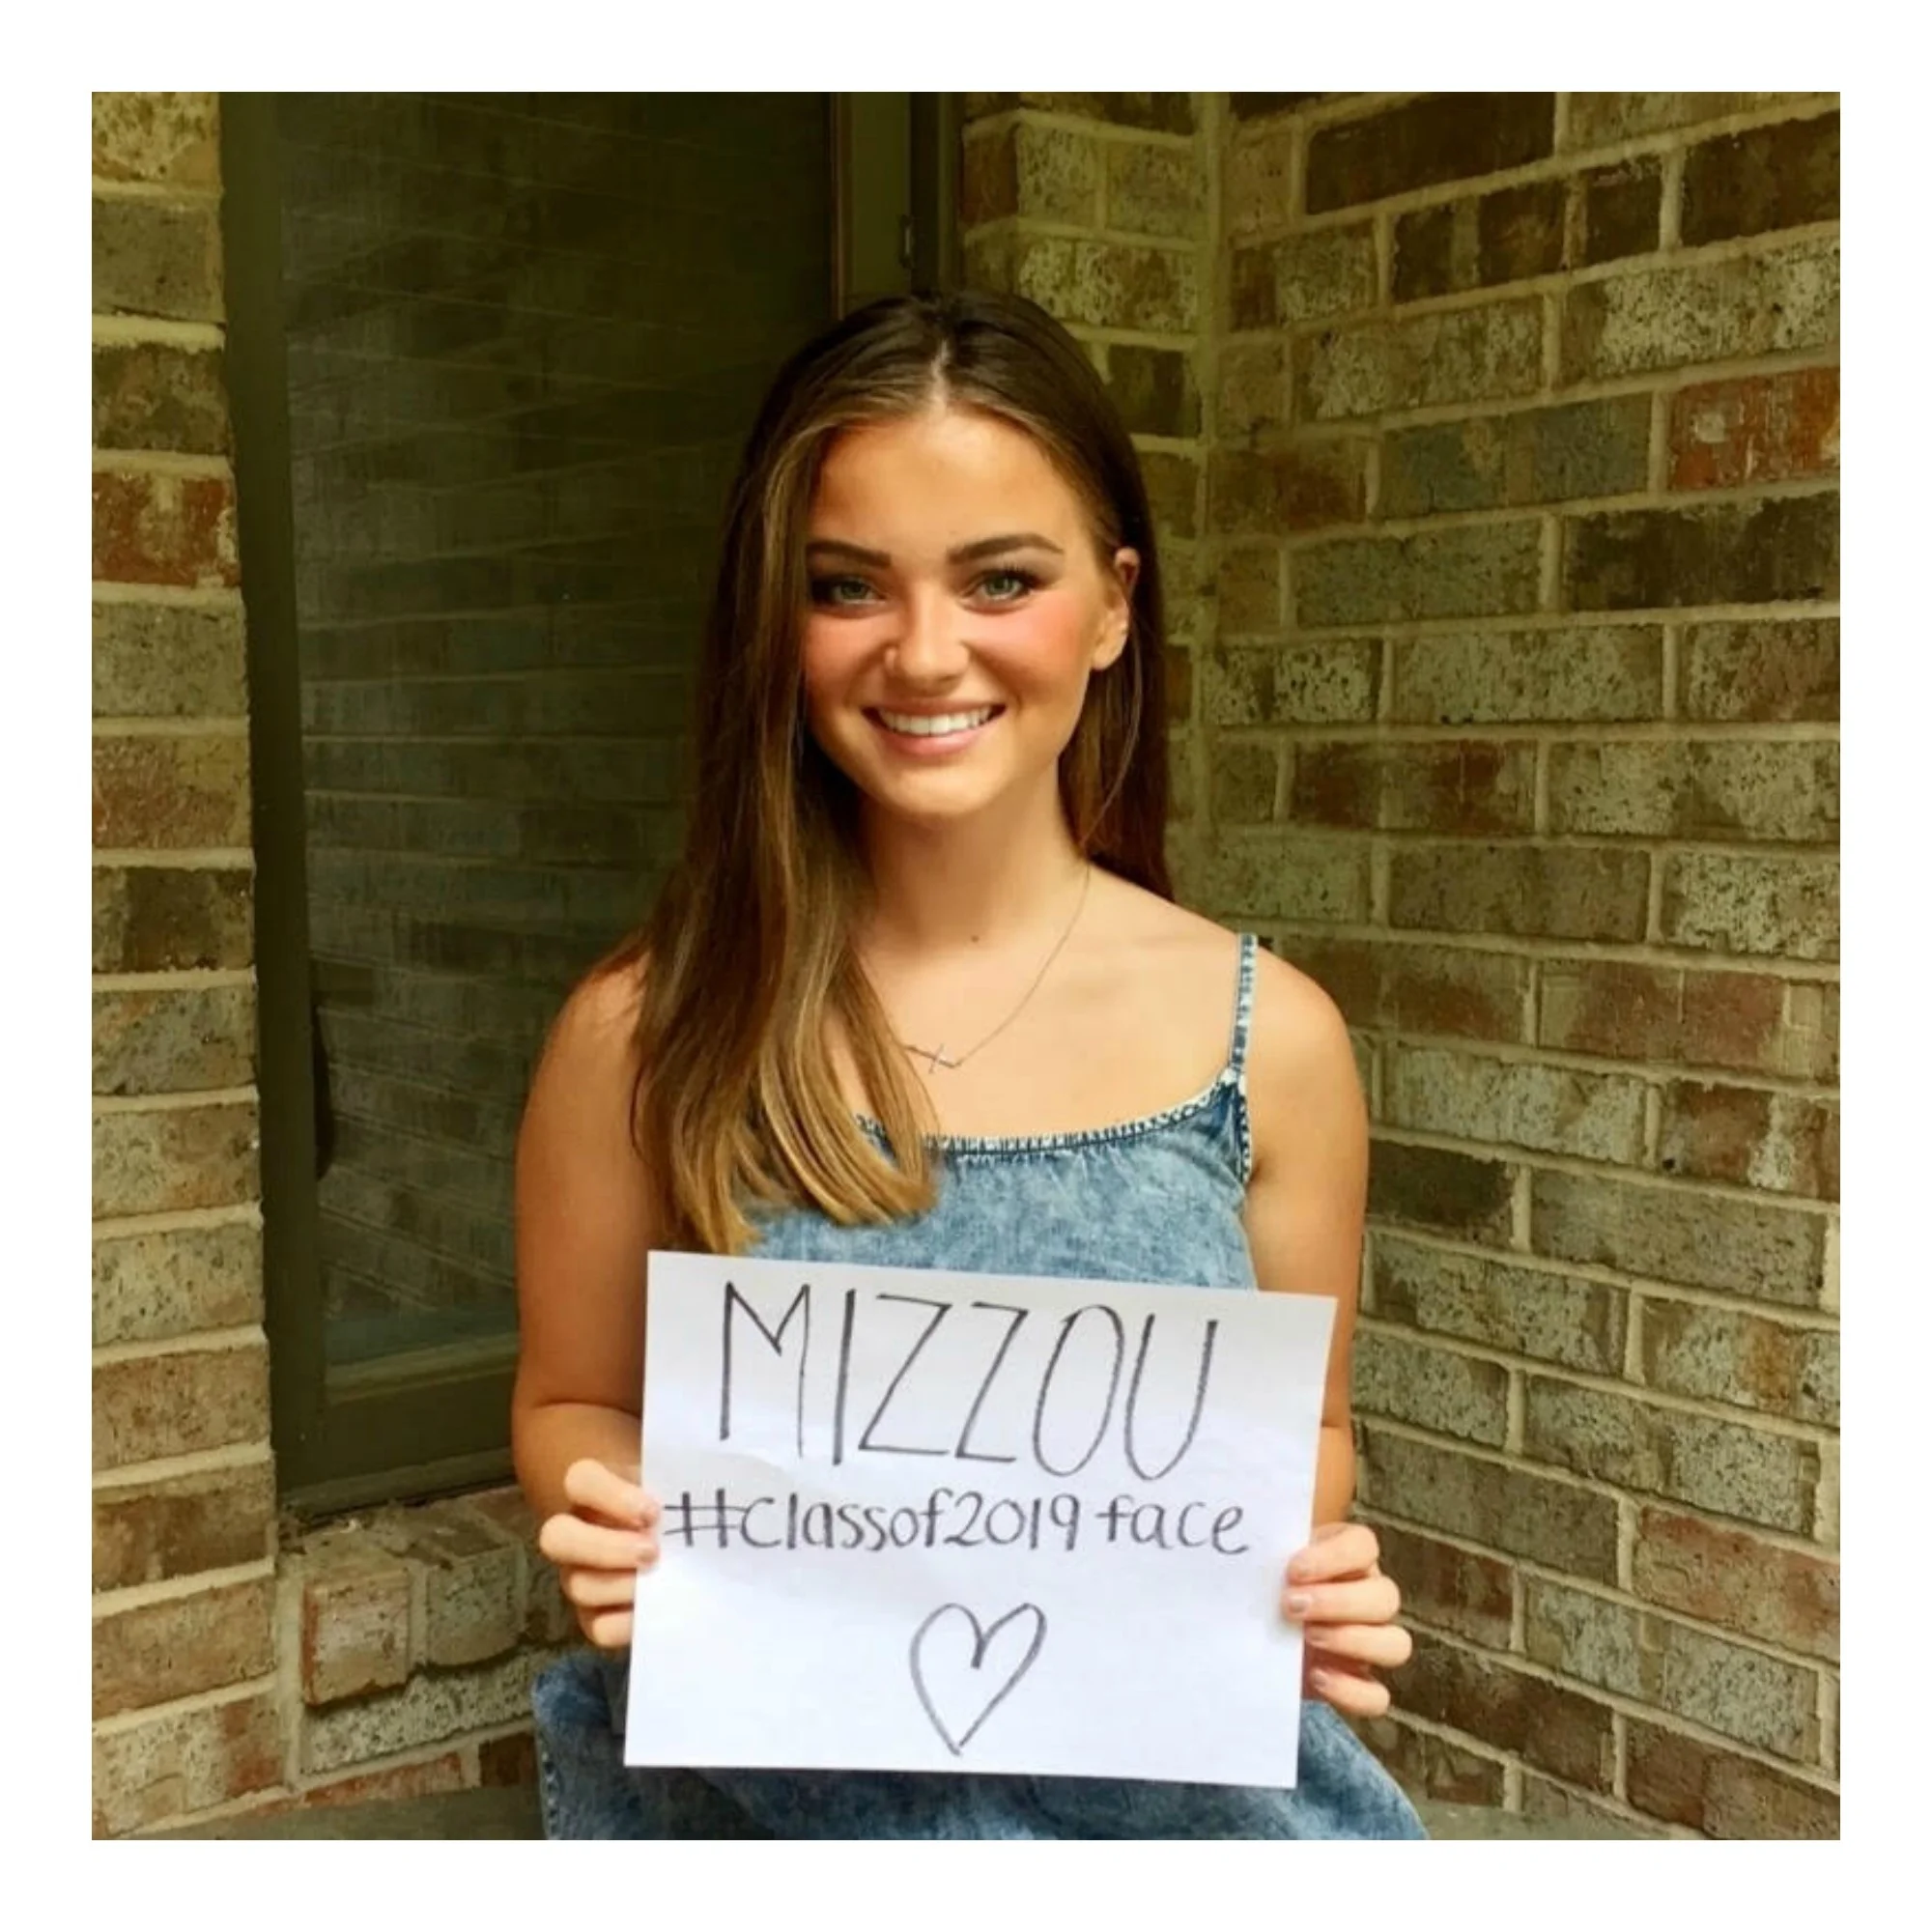 MIZZOU
#classof2019face